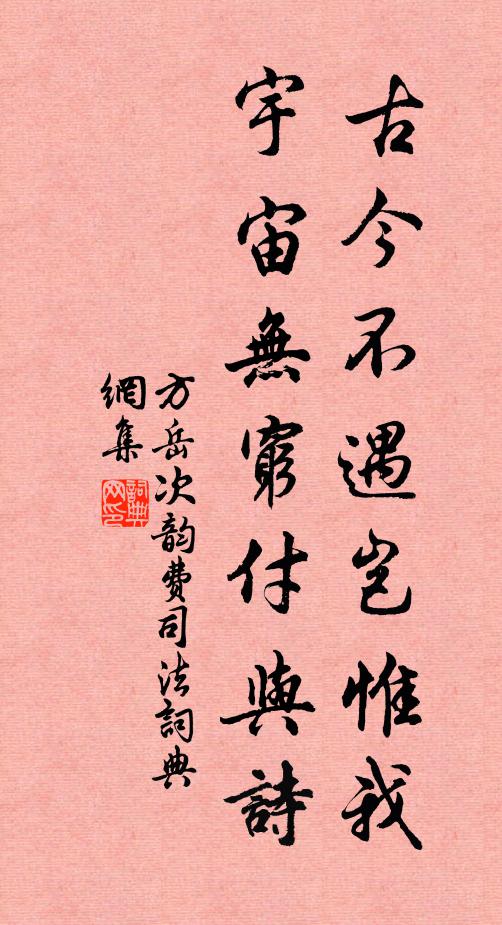 古今不遇豈惟我
宇宙無窮付與詩
方岳次韵費司法詞典
網集
詞典
网印